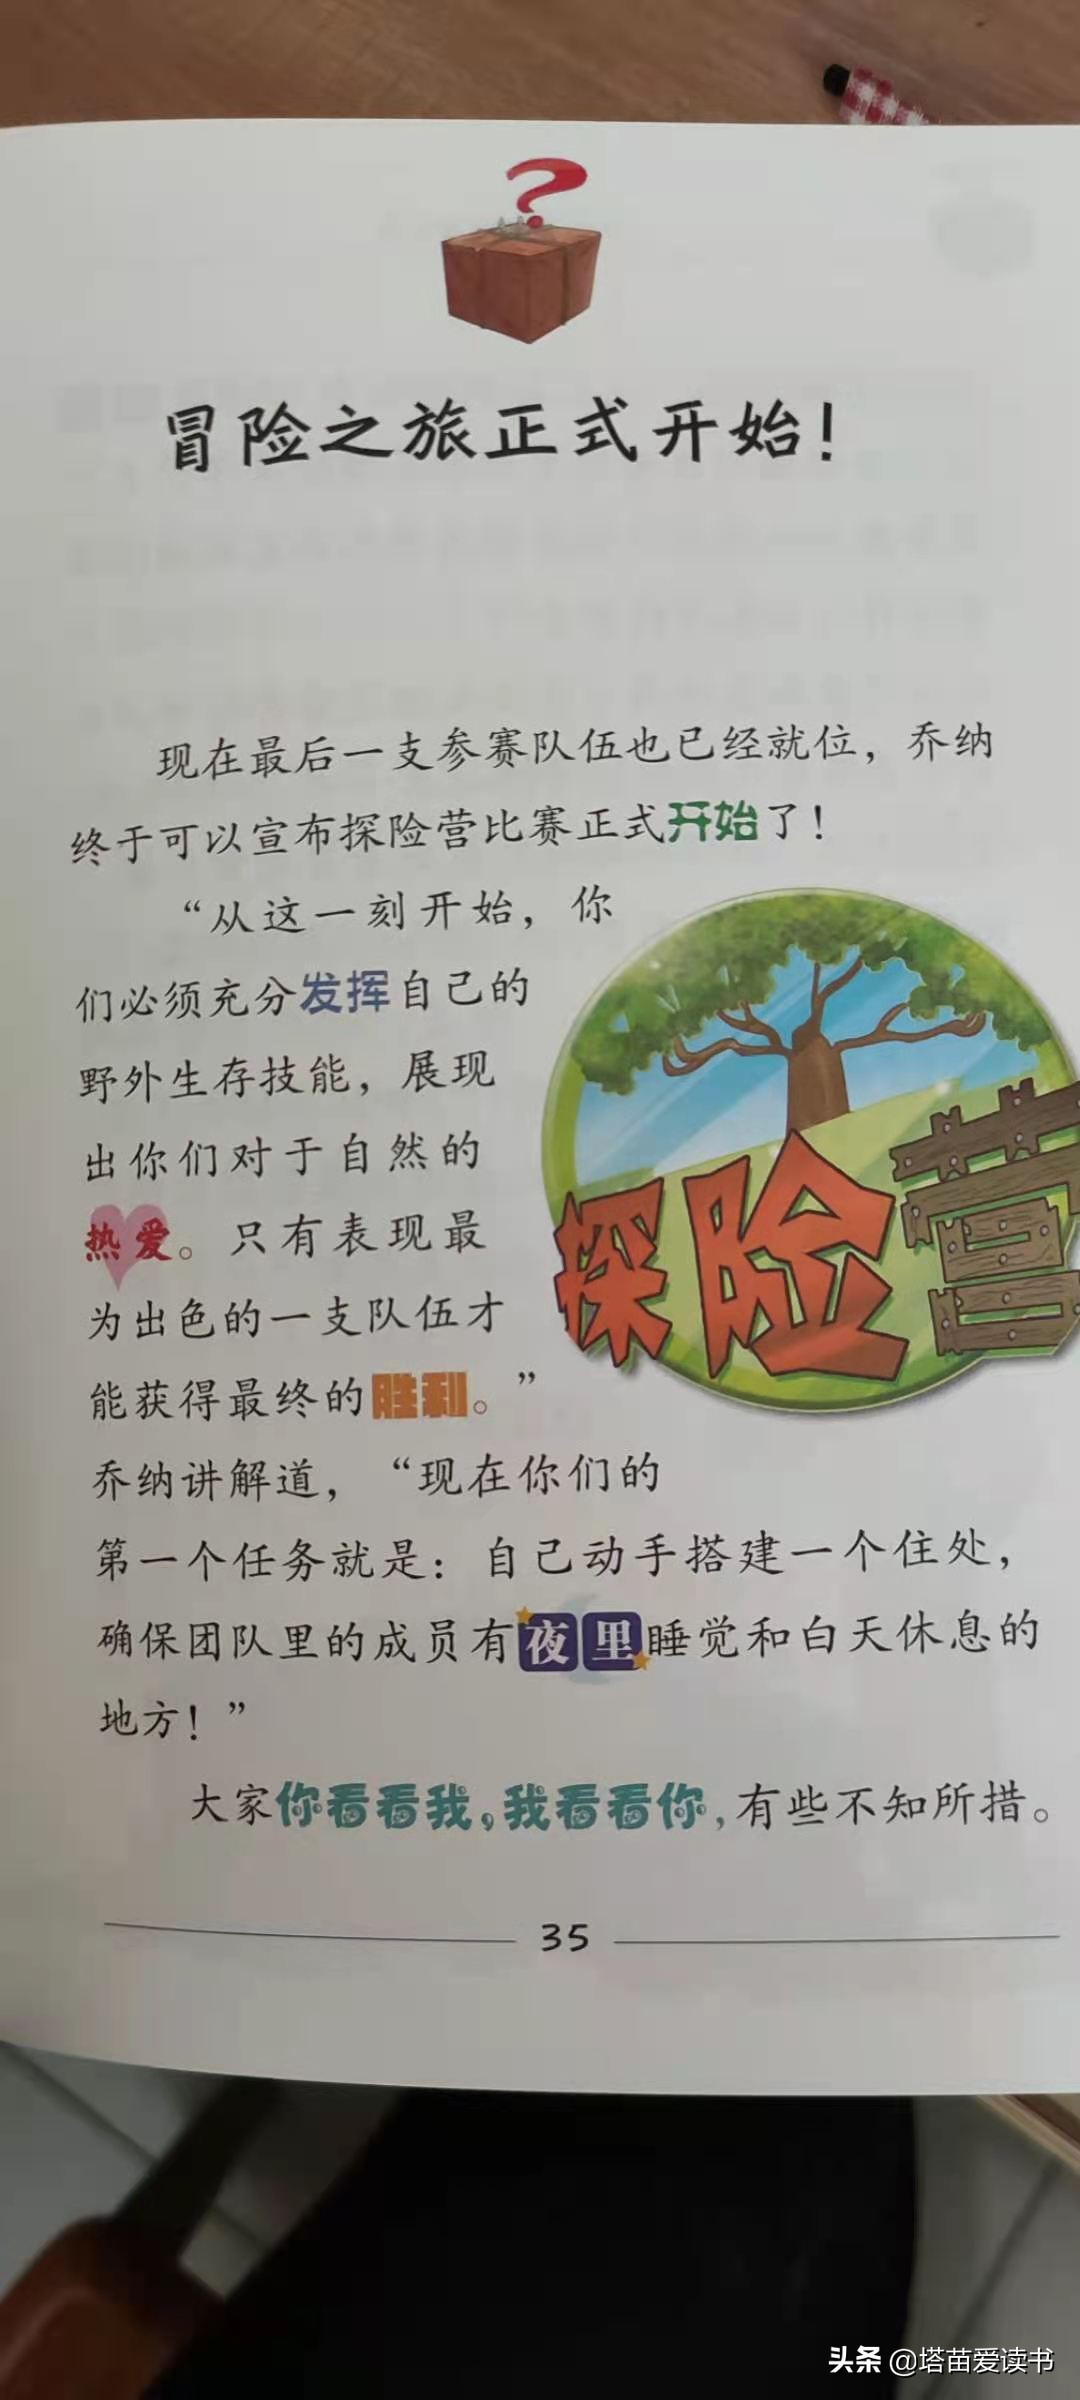 冒险之旅正式开始！
现在最后一支参赛队伍也已经就位，乔纳
终于可以宣布探险营比赛正式开始了！
“从这一刻开始，你
们必须充分发挥自己的
野外生存技能，展现
出你们对于自然的
热爱。只有表现最
为出色的一支队伍才
能获得最终的胜利。”
探险营
乔纳讲解道，“现在你们的
第一个任务就是：自己动手搭建一个住处，
确保团队里的成员有夜里睡觉和白天休息的
地方！”
大家你看看我，我看看你，有些不知所措。
35
头条 @塔苗爱读书